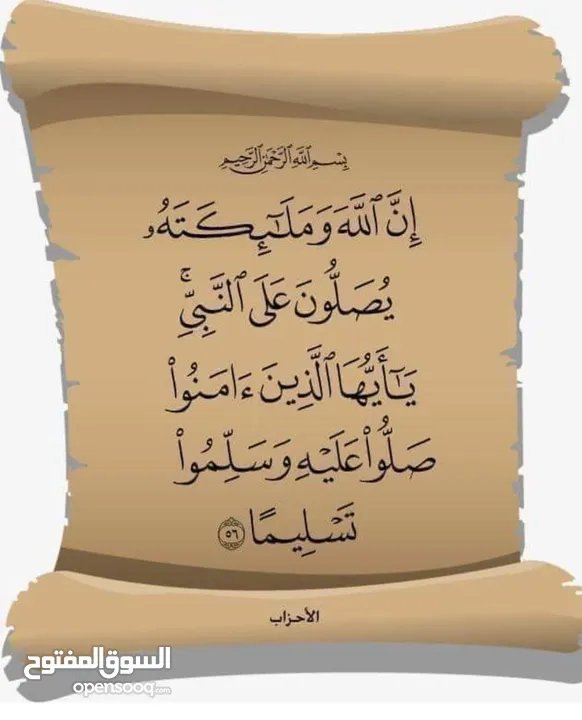 بِسْمِ ٱللَّهِ ٱلرَّحْمَٰنِ ٱلرَّحِيمِ
إِنَّ ٱللَّهَ وَمَلَـٰٓئِكَتَهُۥ
يُصَلُّونَ عَلَى ٱلنَّبِيِّۚ
يَـٰٓأَيُّهَا ٱلَّذِينَ ءَامَنُوا۟
صَلُّوا۟ عَلَيْهِ وَسَلِّمُوا۟
تَسْلِيمًا ٥٦
الأحزاب
السوق المفتوح
opensooq.com